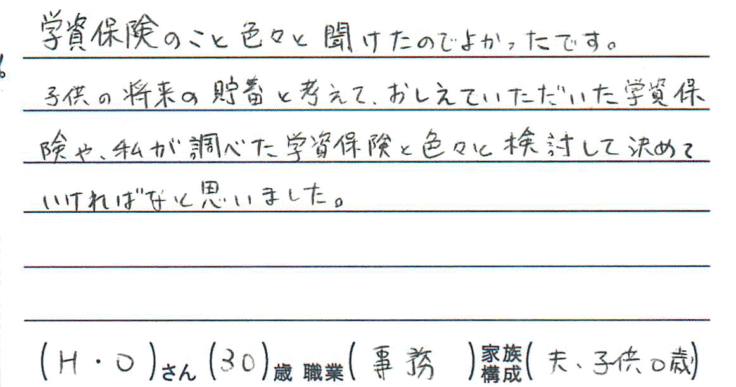 学資保険のこと色々と聞けたのでよかったです。
子供の将来の貯蓄と考えて、おしえていただいた学資保
険や、私が調べた学資保険と色々と検討して決めて
いければなと思いました。
(H・O)さん (30)歳 職業(事務)家族構成(夫、子供0歳)